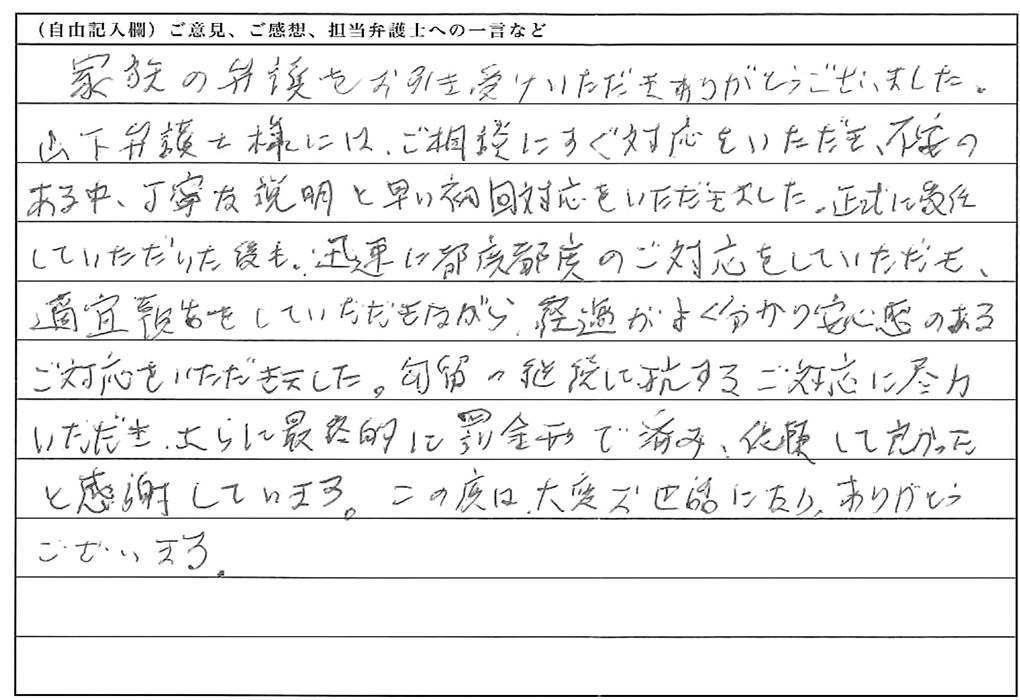 （自由記入欄）ご意見、ご感想、担当弁護士への一言など
家族の弁護をお引き受けいただきありがとうございました。
山下弁護士様には、ご相談にすぐ対応をいただき、不安の
ある中、丁寧な説明と早い初回対応をいただきました。正式に受任
していただいた後も、迅速に都度都度のご対応をしていただき、
適宜報告をしていただきながら、経過がよく分かり安心感のある
ご対応をいただきました。勾留の継続に抗するご対応に尽力
いただき、さらに最終的に罰金刑で済み、依頼して良かった
と感謝しています。この度は、大変お世話になり、ありがとう
ございます。